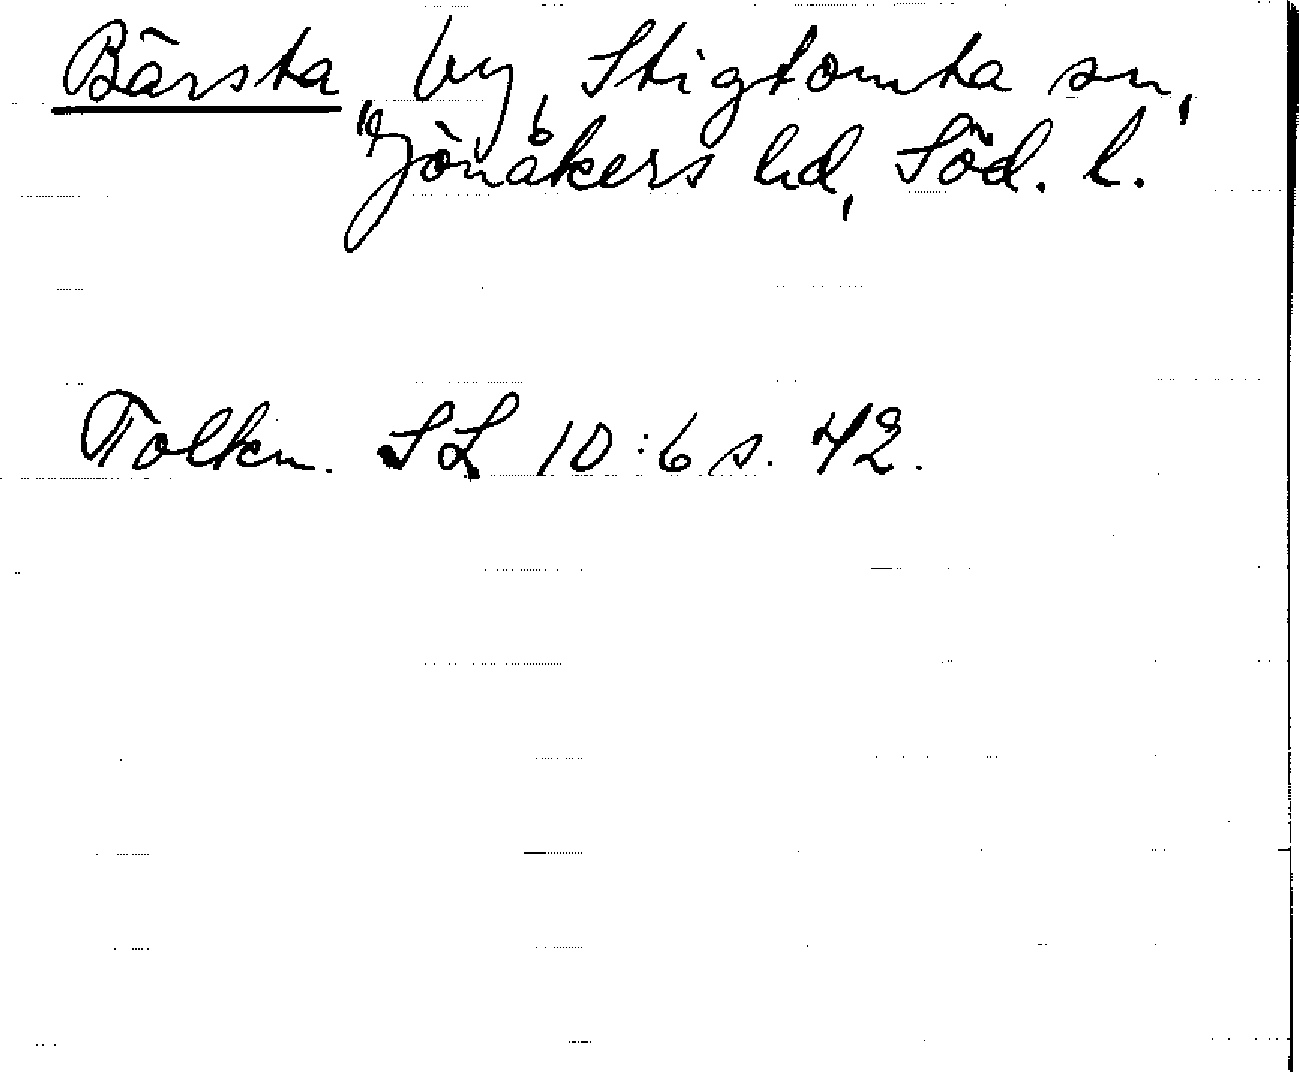 Bärsta, by, Stigtomta sn,
Jönåkers hd, Söd. l.
Tolkn. SL 10:6 s. 42.